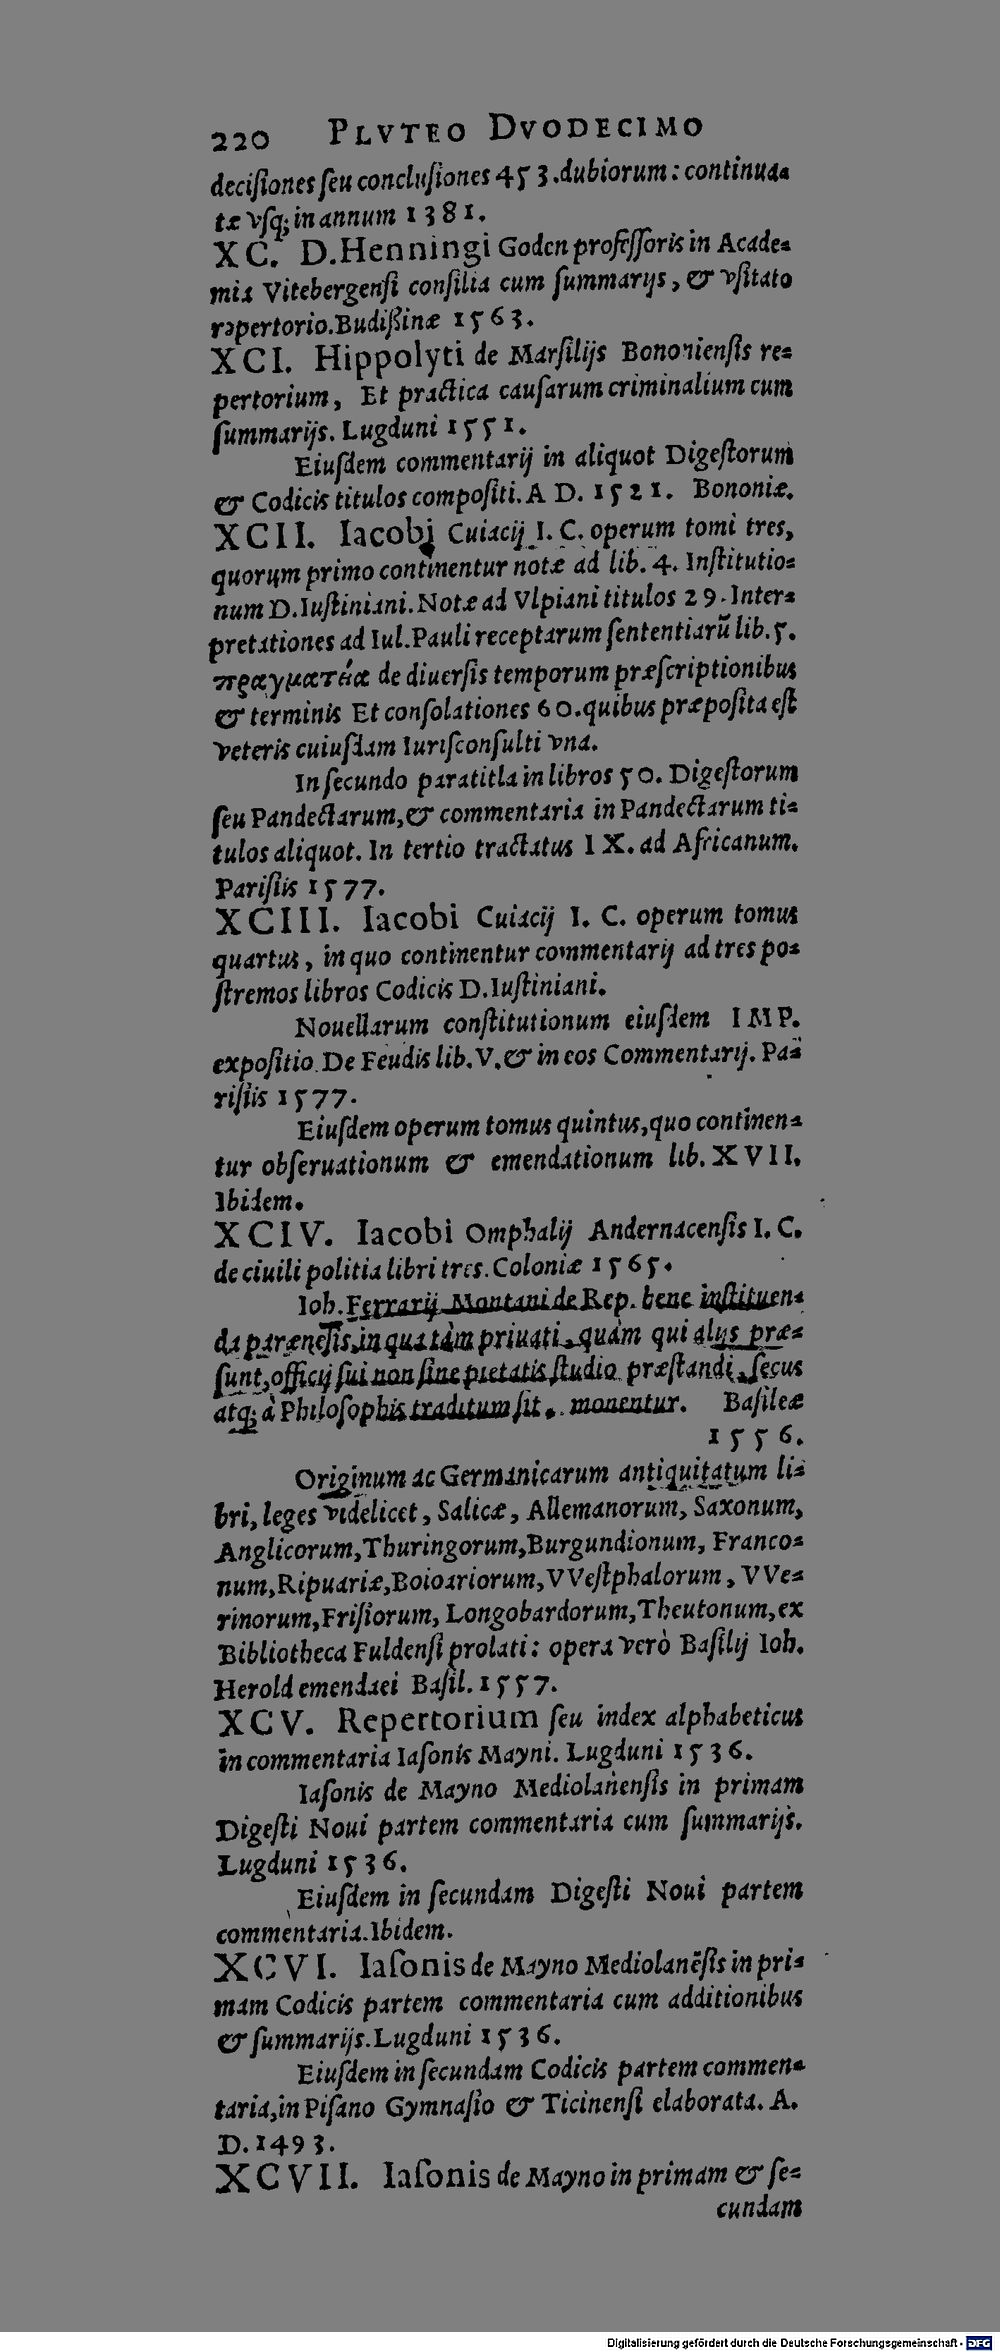 220 PLVTEO DVODECIMO
decisiones seu conclusiones 453. dubiorum: continua=
tæ vsq; in annum 1381.
XC. D. Henningi Goden professoris in Acade=
mia Vitebergensi consilia cum summarijs, & vsitato
repertorio. Budißinæ 1563.
XCI. Hippolyti de Marsilijs Bononiensis re=
pertorium, Et practica causarum criminalium cum
summarijs. Lugduni 1551.
Eiusdem commentarij in aliquot Digestorum
& Codicis titulos compositi. A D. 1521. Bononiæ.
XCII. Iacobi Cuiacij I. C. operum tomi tres,
quorum primo continentur notæ ad lib. 4. Institutio=
num D. Iustiniani. Notæ ad Vlpiani titulos 29. Inter=
pretationes ad Iul. Pauli receptarum sententiarũ lib. 5.
πραγματεία de diuersis temporum præscriptionibus
& terminis Et consolationes 60. quibus præposita est
veteris cuiusdam Iurisconsulti vna.
In secundo paratitla in libros 50. Digestorum
seu Pandectarum, & commentaria in Pandectarum ti=
tulos aliquot. In tertio tractatus IX. ad Africanum.
Parisiis 1577.
XCIII. Iacobi Cuiacij I. C. operum tomus
quartus, in quo continentur commentarij ad tres po=
stremos libros Codicis D. Iustiniani.
Nouellarum constitutionum eiusdem IMP.
expositio De Feudis lib. V. & in eos Commentarij. Pa=
risiis 1577.
Eiusdem operum tomus quintus, quo continen=
tur obseruationum & emendationum lib. XVII.
Ibidem.
XCIV. Iacobi Omphalij Andernacensis I. C.
de ciuili politia libri tres. Coloniæ 1565.
Ioh. Ferrarij Montani de Rep. bene instituen=
da parænesis, in qua tàm priuati, quàm qui alijs præ=
sunt, officij sui non sine pietatis studio præstandi, secus
atq; à Philosophis traditum sit, monentur. Basileæ
1556.
Originum ac Germanicarum antiquitatum li=
bri, leges videlicet, Salicæ, Allemanorum, Saxonum,
Anglicorum, Thuringorum, Burgundionum, Franco=
num, Ripuariæ, Boioariorum, VVestphalorum, VVe=
rinorum, Frisiorum, Longobardorum, Theutonum, ex
Bibliotheca Fuldensi prolati: opera verò Basilij Ioh.
Herold emendaei Basil. 1557.
XCV. Repertorium seu index alphabeticus
in commentaria Iasonis Mayni. Lugduni 1536.
Iasonis de Mayno Mediolanensis in primam
Digesti Noui partem commentaria cum summarijs.
Lugduni 1536.
Eiusdem in secundam Digesti Noui partem
commentaria. Ibidem.
XCVI. Iasonis de Mayno Mediolanẽsis in pri=
mam Codicis partem commentaria cum additionibus
& summarijs. Lugduni 1536.
Eiusdem in secundam Codicis partem commen=
taria, in Pisano Gymnasio & Ticinensi elaborata. A.
D. 1493.
XCVII. Iasonis de Mayno in primam & se=
cundam
Digitalisierung gefördert durch die Deutsche Forschungsgemeinschaft - DFG